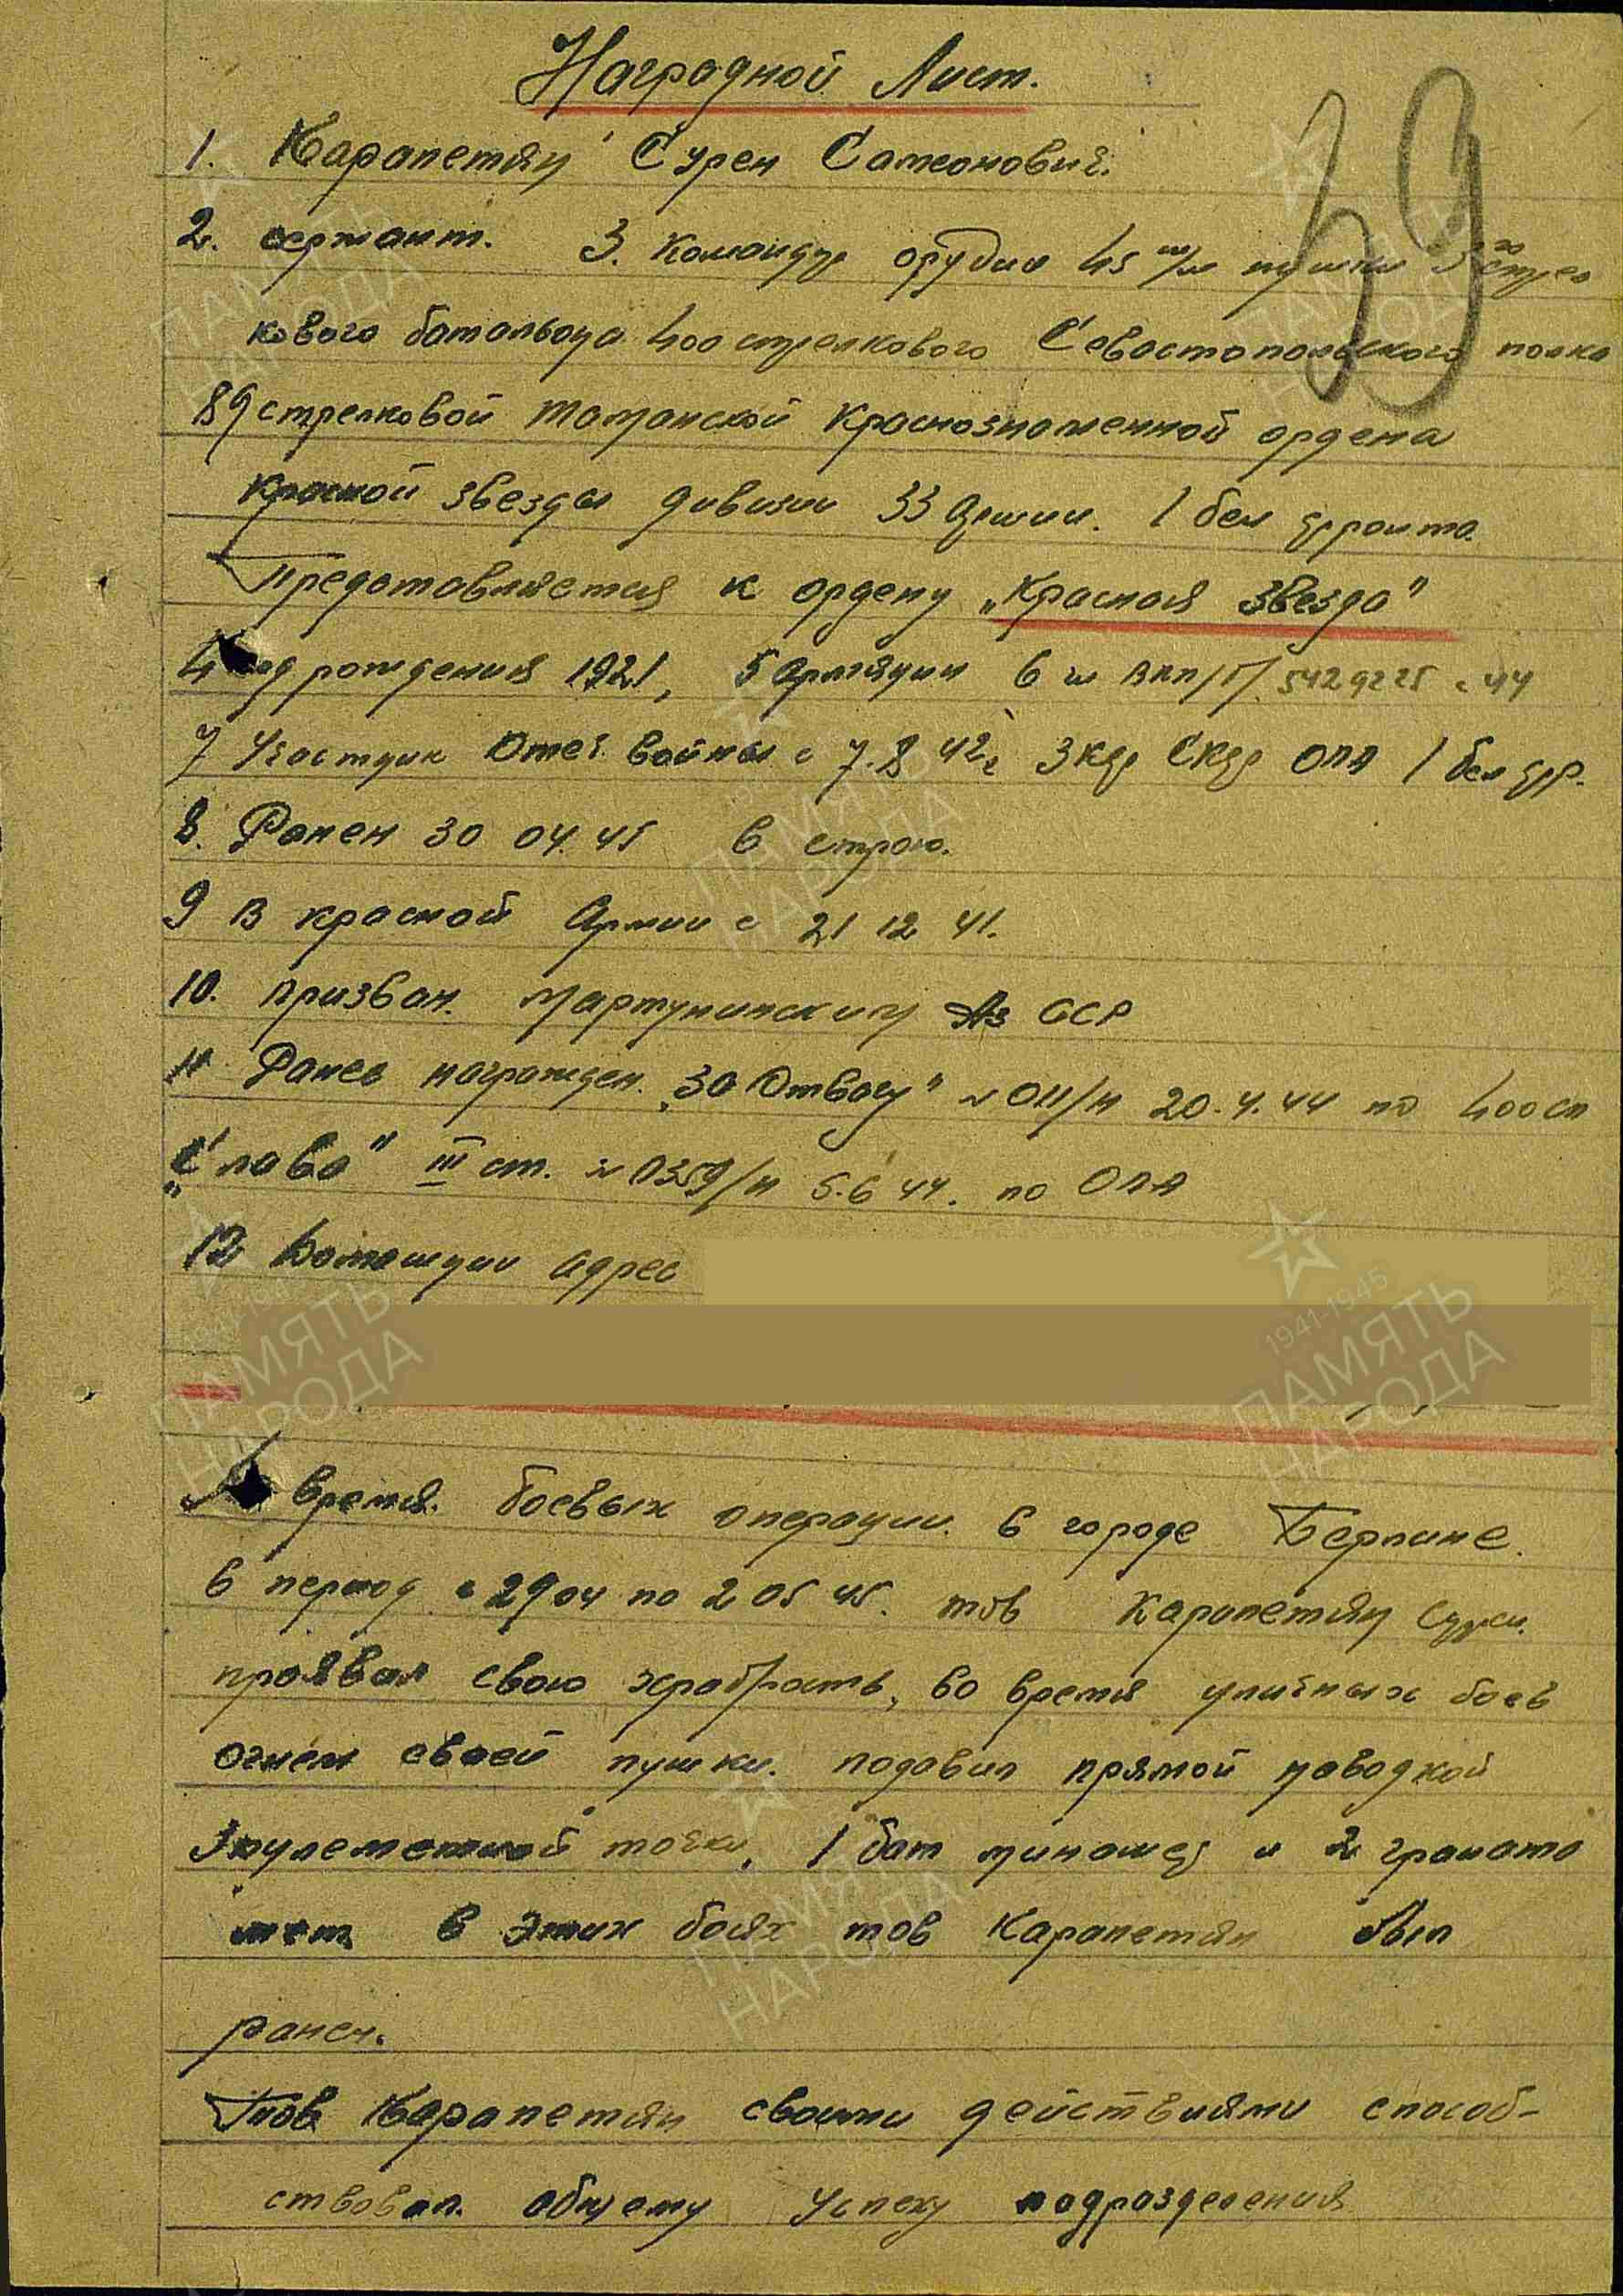 39
Наградной Лист.
1. Карапетян Сурен Самсонович.
2. сержант. 3. Командир орудия 45 м/м пушки 3го стрел
кового батальона 400 стрелкового Севастопольского полка
89 стрелковой Таманской Краснознаменной ордена
Красной звезды дивизии 33 Армии. 1 бел фронта.
Представляется к ордену „Красная Звезда"
4 год рождения 1921, 5 Армянин 6 чл ВКП/б/ 5429225 с 44
7 Участник Отеч. войны с 7.8 42г ЗКФ СКФ ОПА 1 бел фр.
8. Ранен 30 04. 45 в строю.
9 В красной Армии с 21 12 41.
10. Призван. Мартунинским Аз ССР
11 Ранее награжден. „За Отвагу" № 011/н 20.4.44 по 400 сп
„Слава" III ст. № 0359/н 5.6 44. по ОПА
12 Домашнии адрес
время боевых операции в городе Берлине.
в период с 29 04 по 2 05 45. тов Карапетян Сурен.
проявил свою храбрость, во время уличных боев
огнем своей пушки. подавил прямой наводкой
3 пулеметной точки, 1 бат миномет и 2 гранато
мет. в этих боях тов Карапетян был
ранен.
Тов Карапетян своими действиями способ-
ствовал общему успеху подразделения
ПАМЯТЬ НАРОДА
1941-1945
ПАМЯТЬ
НАРОДА